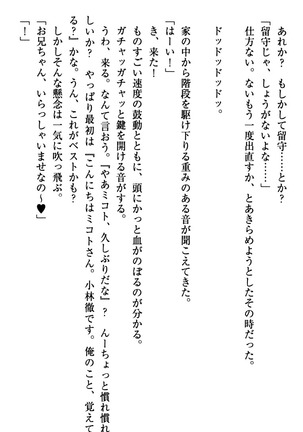 あれか？　もしかして留守……とか？
「留守じゃ、しょうがないよな……」
仕方ない。ないもう一度出直すか、とあきらめようとしたその時だった。
ドッドッドッドッ。
家の中から階段を駆け下りる重みのある音が聞こえてきた。
「はーい！」
き、来た！
ものすごい速度の鼓動とともに、頭にかっと血がのぼるのが分かる。
ガチャッガチャッと鍵を開ける音がする。
うわ、来る。なんて言おう。「やあミコト、久しぶりだな」？　んーちょっと慣れ慣れ
しいか？　やっぱり最初は「こんにちはミコトさん。小林徹です。俺のこと、覚えて
る？」かな。うん、これがベストかも？
しかしそんな懸念は一気に吹っ飛ぶ。
「お兄ちゃん、いらっしゃいませなの～♥」
「！」